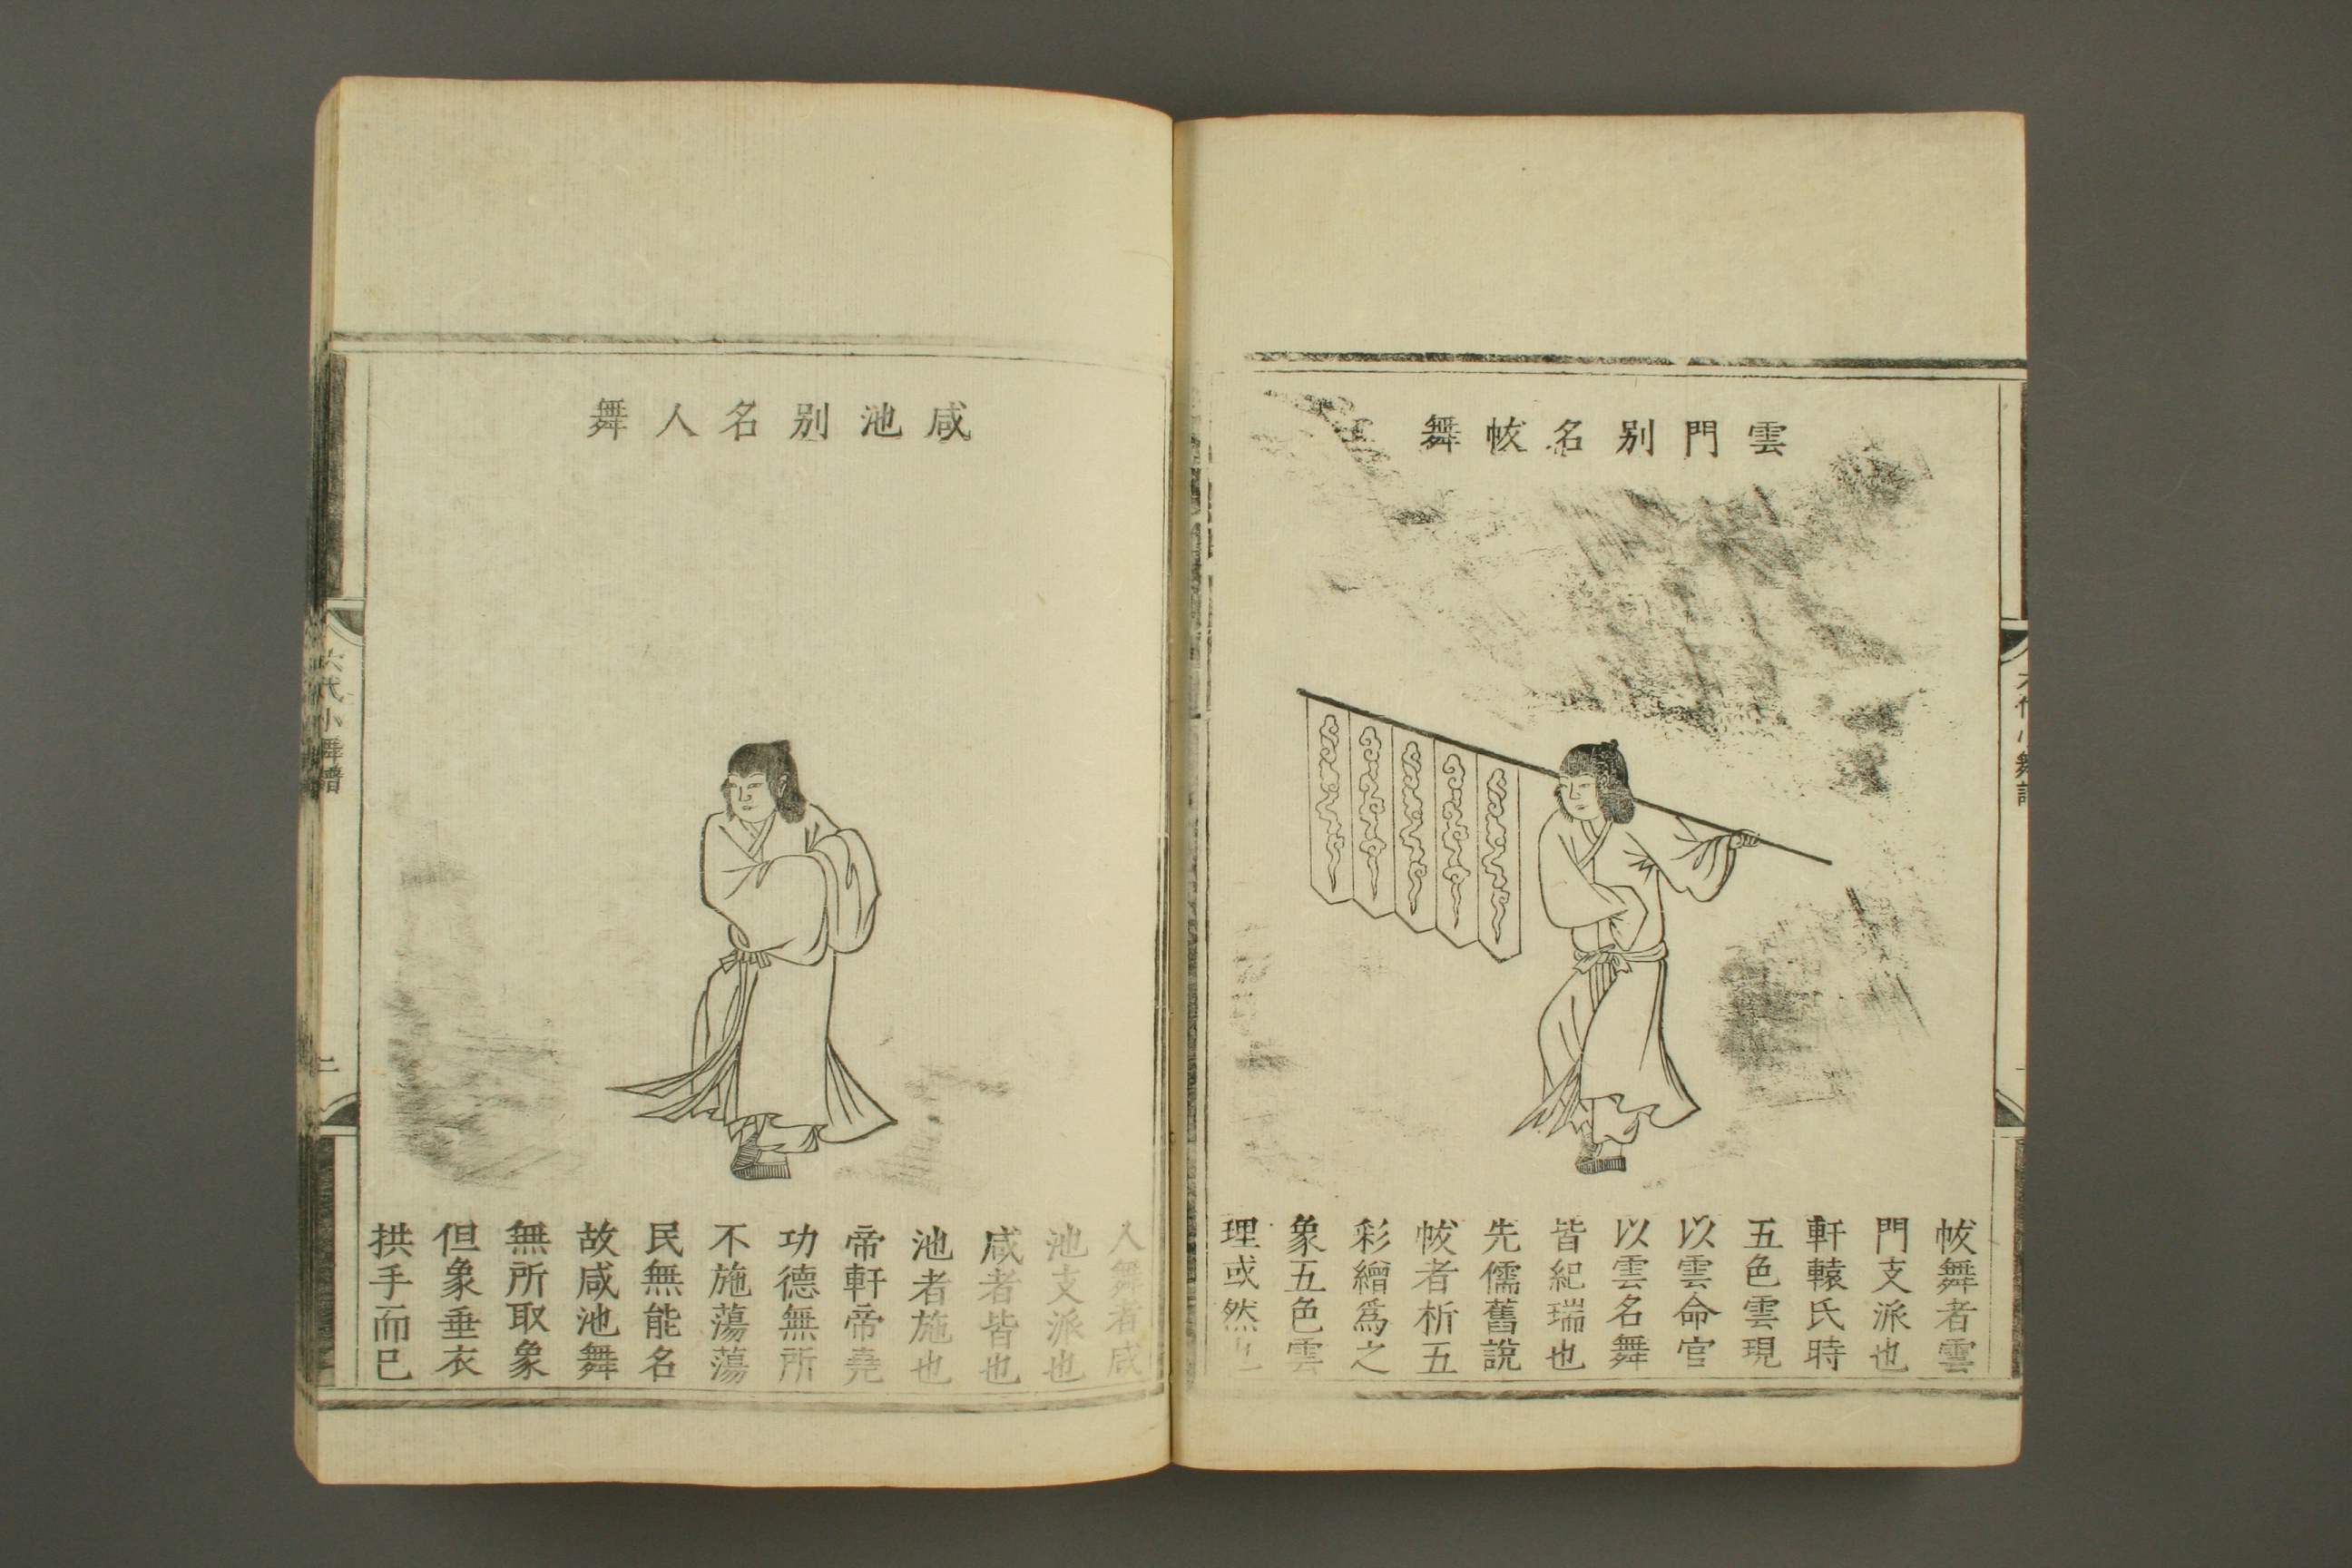 雲門别名帗舞
帗舞者雲
門支派也
軒轅氏時
五色雲現
以雲命官
以雲名舞
皆紀瑞也
先儒舊說
帗者析五
彩繒爲之
象五色雲
理或然也
咸池别名人舞
人舞者咸
池支派也
咸者皆也
池者施也
帝軒帝堯
功德無所
不施蕩蕩
民無能名
故咸池舞
無所取象
但象垂衣
拱手而巳
六代小舞譜
二